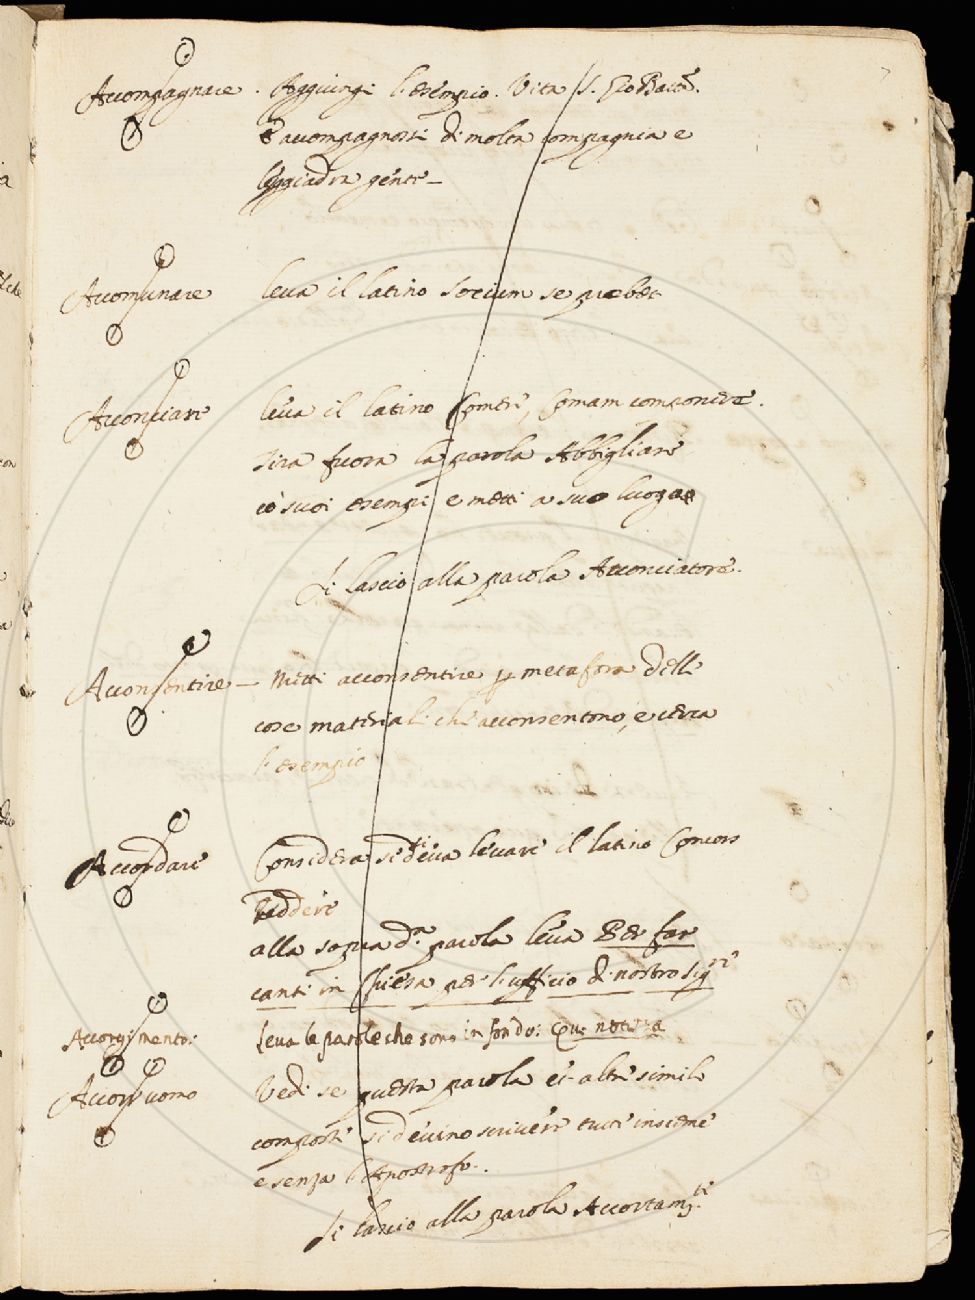 7
Accompagnare. Aggiungi l'esempio. Vita S. Gio Batt.
e accompagnossi di molta compagnia e
leggiadra gente—
Accomunare leva il latino socium se præbet
Acconciare leva il latino Comere, Comam componere.
tira fuora la parola Abbigliare
co' suoi esempi e metti a suo luogo
Si lasciò alla parola Acconciatore.
Acconsentire— Metti acconsentire p metafora delle
cose materiali che acconsentono, e cerca
l'esempio
Accordare Considera se si deva levare il latino Concors
reddere
alla sopra d.a parola leva Per far
canti in Chiesa per l'ufficio di nostro Sig.re
Accorgimento: leva le parole che sono in fondo: Qui notizia
Accorruomo Vedi se questa parola et altre simili
composte si devino scrivere tutte insieme
e senza l'Apostrofo.
Si lasciò alla parola Accortam.te